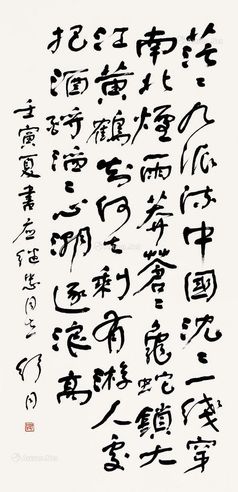 茫〻九派流中國沈〻一綫穿
南北煙雨莽蒼〻龜蛇鎖大
江黄鶴知何去剩有游人處
把酒酹滔〻心潮逐浪高
壬寅夏書应继忠同志 舒同